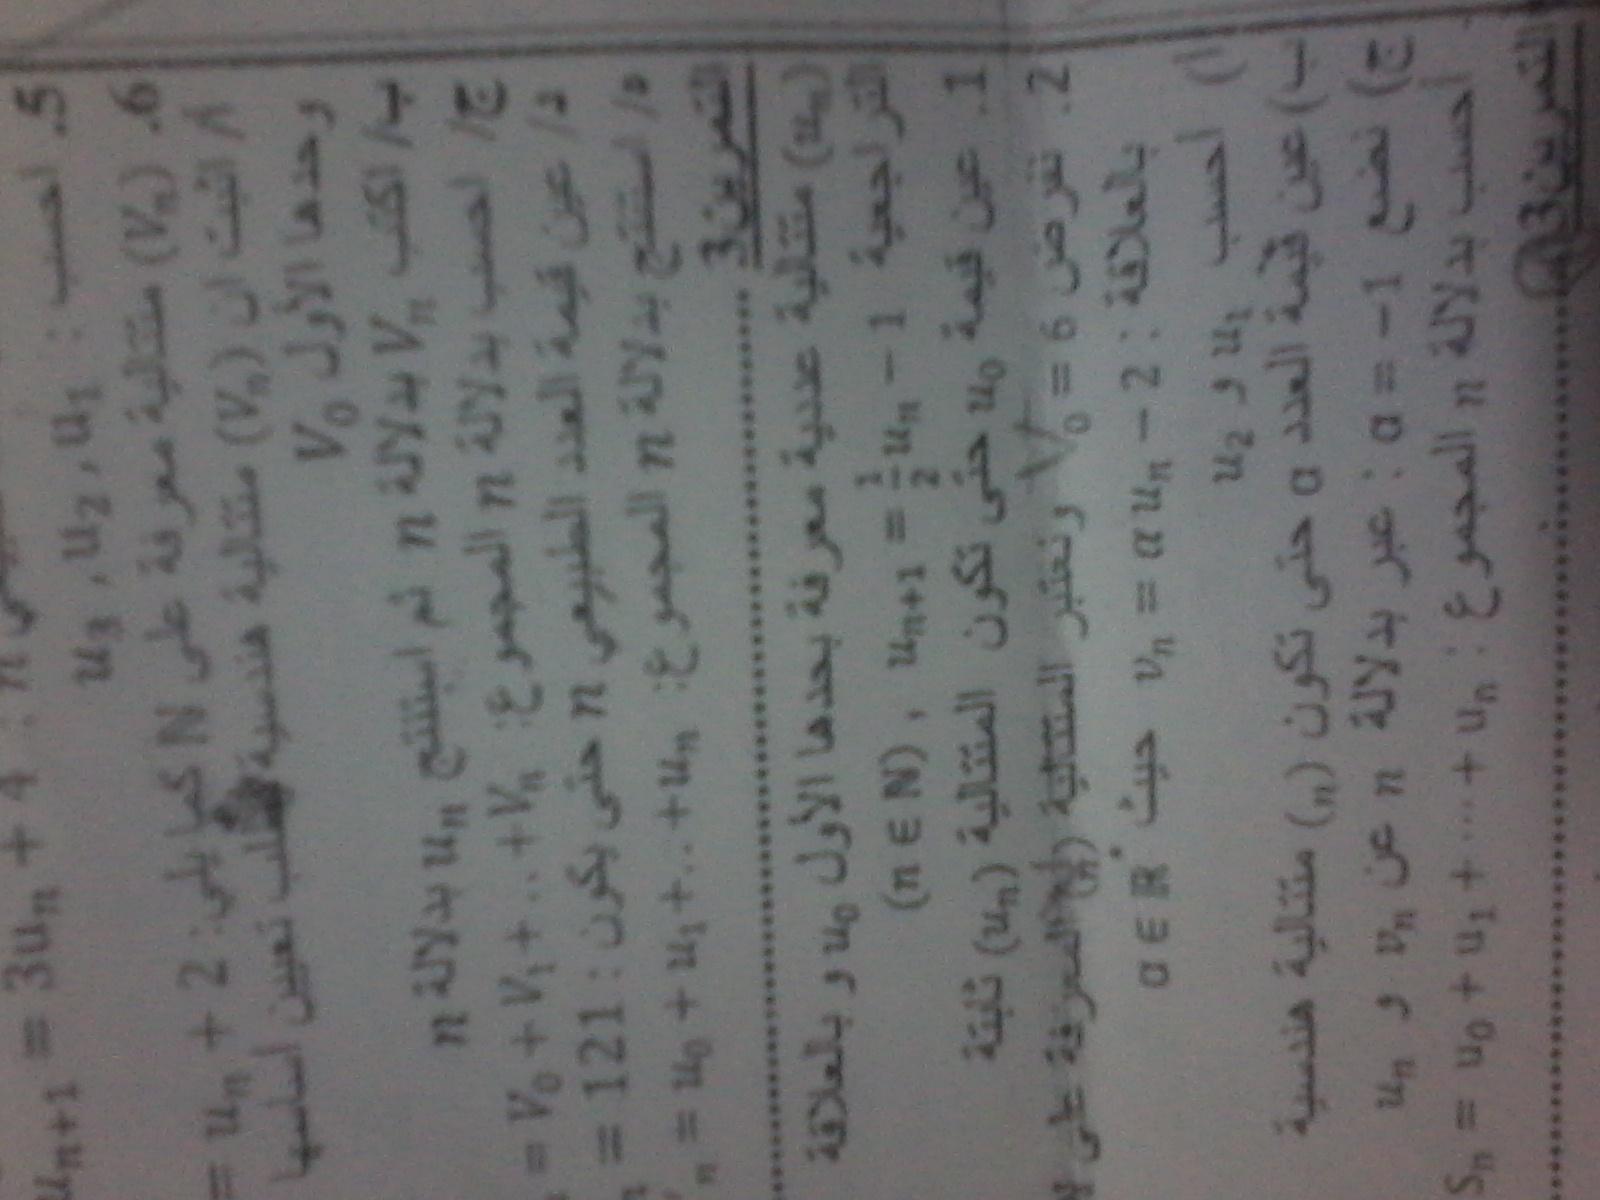 u_{n+1} = 3u_n + 4 : n
5. احسب : u_3 , u_2 , u_1
6. (V_n) متتالية معرفة على N كما يلي : = u_n + 2
أ/ اثبت ان (V_n) متتالية هندسية يطلب تعيين اساسها
وحدها الأول V_0
ب/ اكتب V_n بدلالة n ثم استنتج u_n بدلالة n
ج/ احسب بدلالة n المجموع : = V_0 + V_1 + .. + V_n
د/ عين قيمة العدد الطبيعي n حتى يكون : = 121
ه/ استنتج بدلالة n المجموع : _n = u_0 + u_1 + .. + u_n
التمرين3
(u_n) متتالية عددية معرفة بحدها الأول u_0 و بالعلاقة
التراجعية u_{n+1} = \frac{1}{2}u_n − 1 , (n ∈ N)
1. عين قيمة u_0 حتى تكون المتتالية (u_n) ثابتة
2. نفرض u_0 = 6 ونعتبر المتتالية (v_n) المعرفة على N
بالعلاقة : v_n = α u_n − 2 حيث α ∈ ℝ*
أ) احسب u_1 و u_2
ب) عين قيمة العدد α حتى تكون (v_n) متتالية هندسية
ج) نضع α = −1 : عبر بدلالة n عن v_n و u_n
احسب بدلالة n المجموع : S_n = u_0 + u_1 + ⋯ + u_n
التمرين3